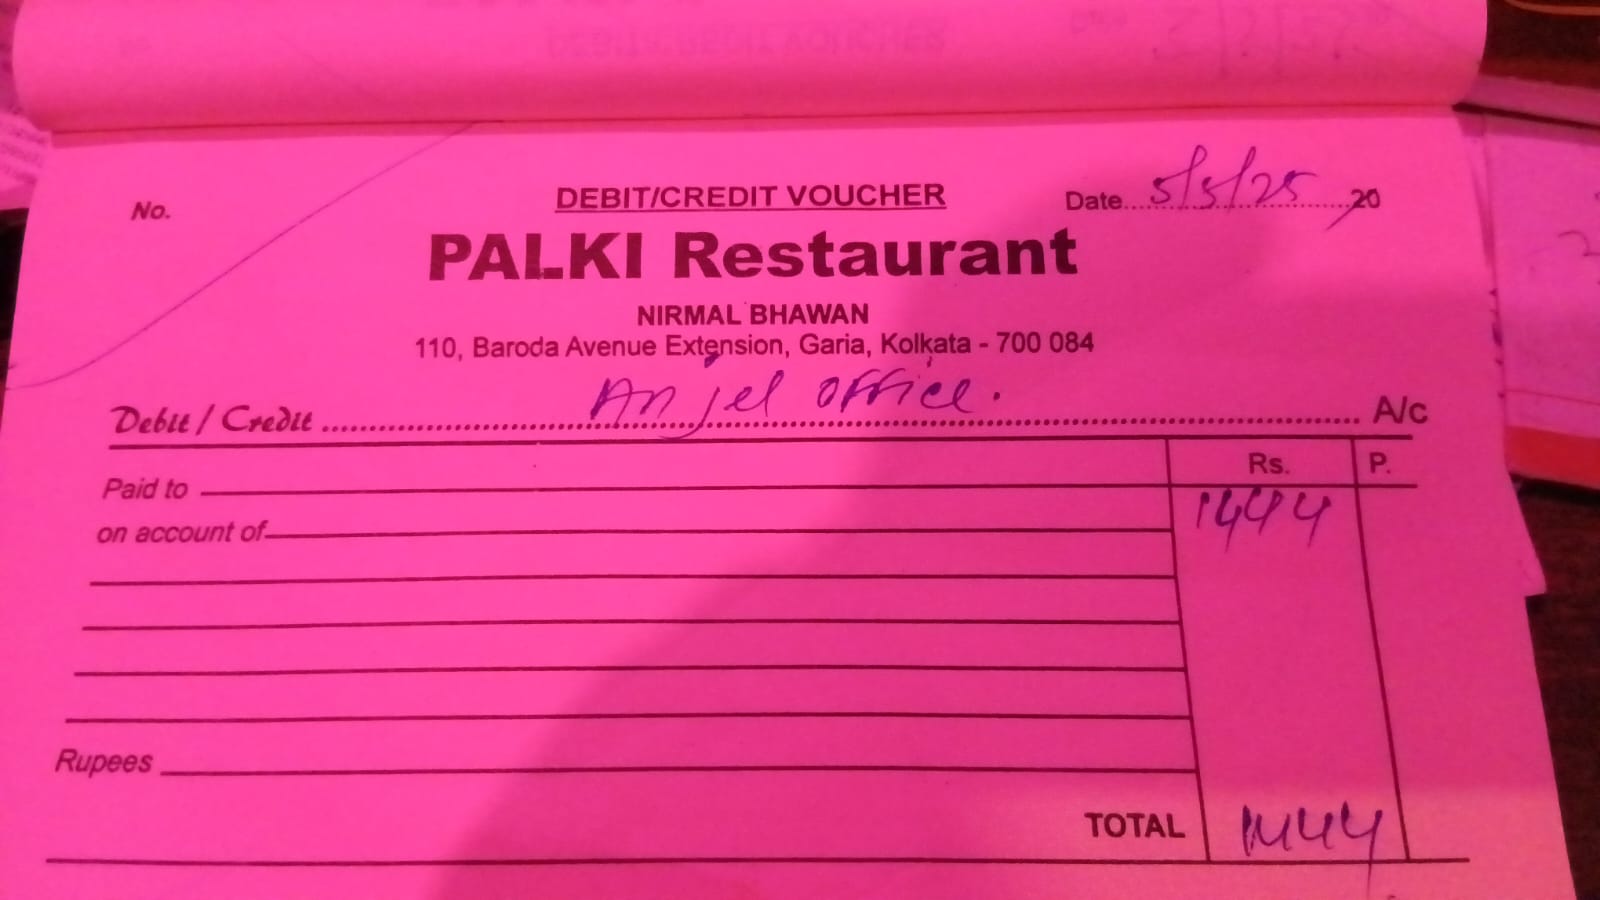 No.
DEBIT/CREDIT VOUCHER
Date 5/5/25 20
PALKI Restaurant
NIRMAL BHAWAN
110, Baroda Avenue Extension, Garia, Kolkata - 700 084
Debit / Credit Anjel office. A/c
Rs. P.
Paid to
1444
on account of
Rupees
TOTAL 1444